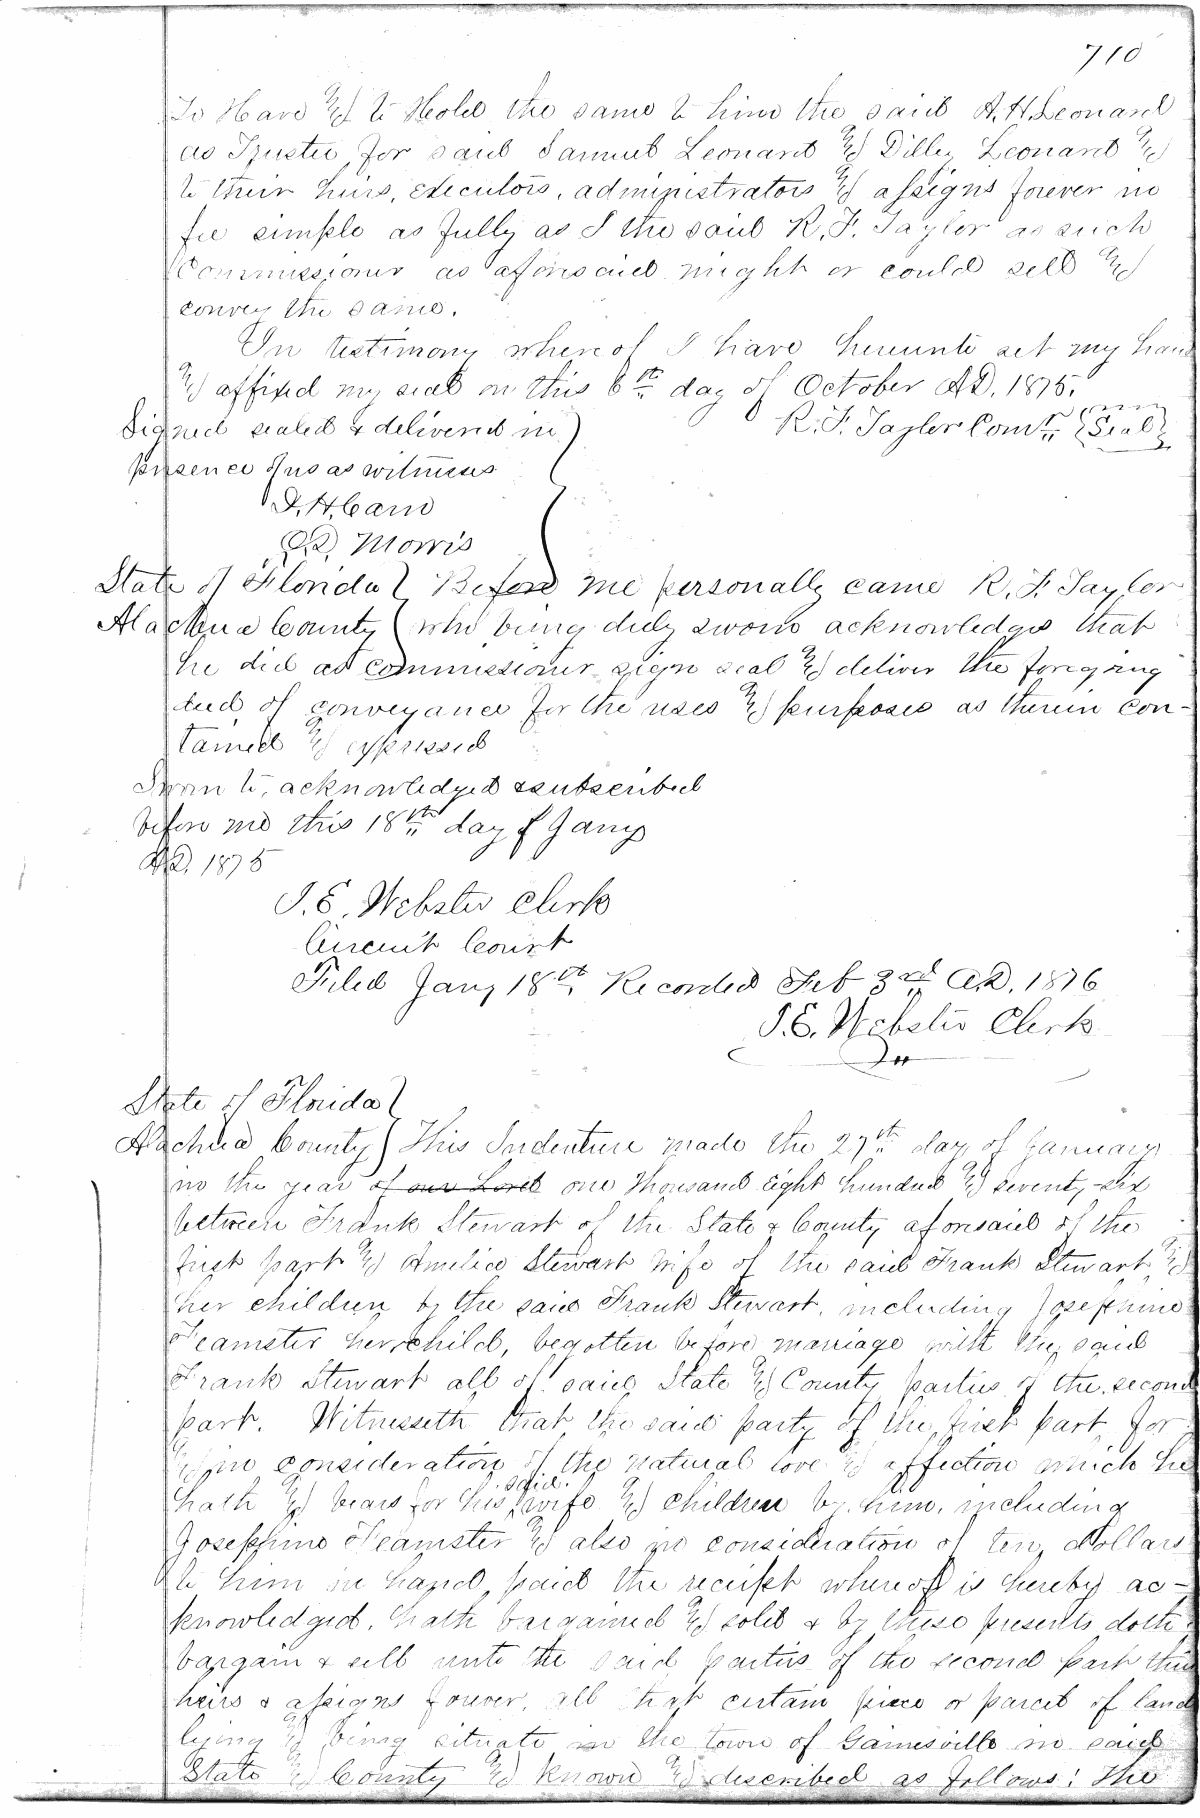 710
To Have & to Hold the same to him the said A. H. Leonard
as Trustee for said Samuel Leonard & Dilley Leonard &
to their heirs, executors, administrators & assigns forever in
fee simple as fully as I the said R. F. Taylor as such
Commissioner as aforesaid might or could sell &
convey the same.
In testimony where of I have hereunto set my hand
& affixed my seal on this 6th day of October A.D. 1875.
Signed sealed & delivered in R. F. Taylor Comr. {Seal}
presence of us as witnesses
I. H. Carn
Morris
State of Florida } Before me personally came R. F. Taylor
Alachua County } who being duly sworn acknowledges that
he did as commissioner sign seal & deliver the foregoing
deed of conveyance for the uses & purposes as therein con-
tained & expressed
Sworn to, acknowledged & subscribed
before me this 18th day of Jany
A.D. 1875
J. E. Webster Clerk
Circuit Court
Filed Jany 18th, Recorded Feb 3rd A.D. 1876
J. E. Webster Clerk
State of Florida }
Alachua County } This Indenture made the 27th day of January
in the year of our Lord one thousand eight hundred & seventy-six
between Frank Stewart of the State & County aforesaid of the
first part & Amelia Stewart wife of the said Frank Stewart &
her children by the said Frank Stewart, including Josephine
Feamster her child, begotten before marriage with the said
Frank Stewart all of said State & County parties of the second
part. Witnesseth that the said party of the first part, for
& in consideration of the natural love & affection which he
hath & bears for his said wife & children by him, including
Josephine Feamster & also in consideration of ten dollars
to him in hand paid the receipt whereof is hereby ac-
knowledged, hath bargained & sold & by these presents doth
bargain & sell unto the said parties of the second part their
heirs & assigns forever, all that certain piece or parcel of land
lying & being situate in the town of Gainesville in said
State & County & known & described as follows: The